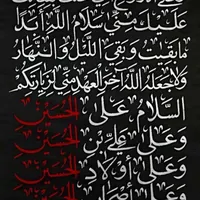 عليك مني سلام الله أبدا
ما بقيت وبقي الليل والنهار
ولا جعله الله آخر العهد مني لزيارتكم
السلام على الحسين
وعلى علي بن الحسين
وعلى أولاد الحسين
وعلى أصحاب الحسين